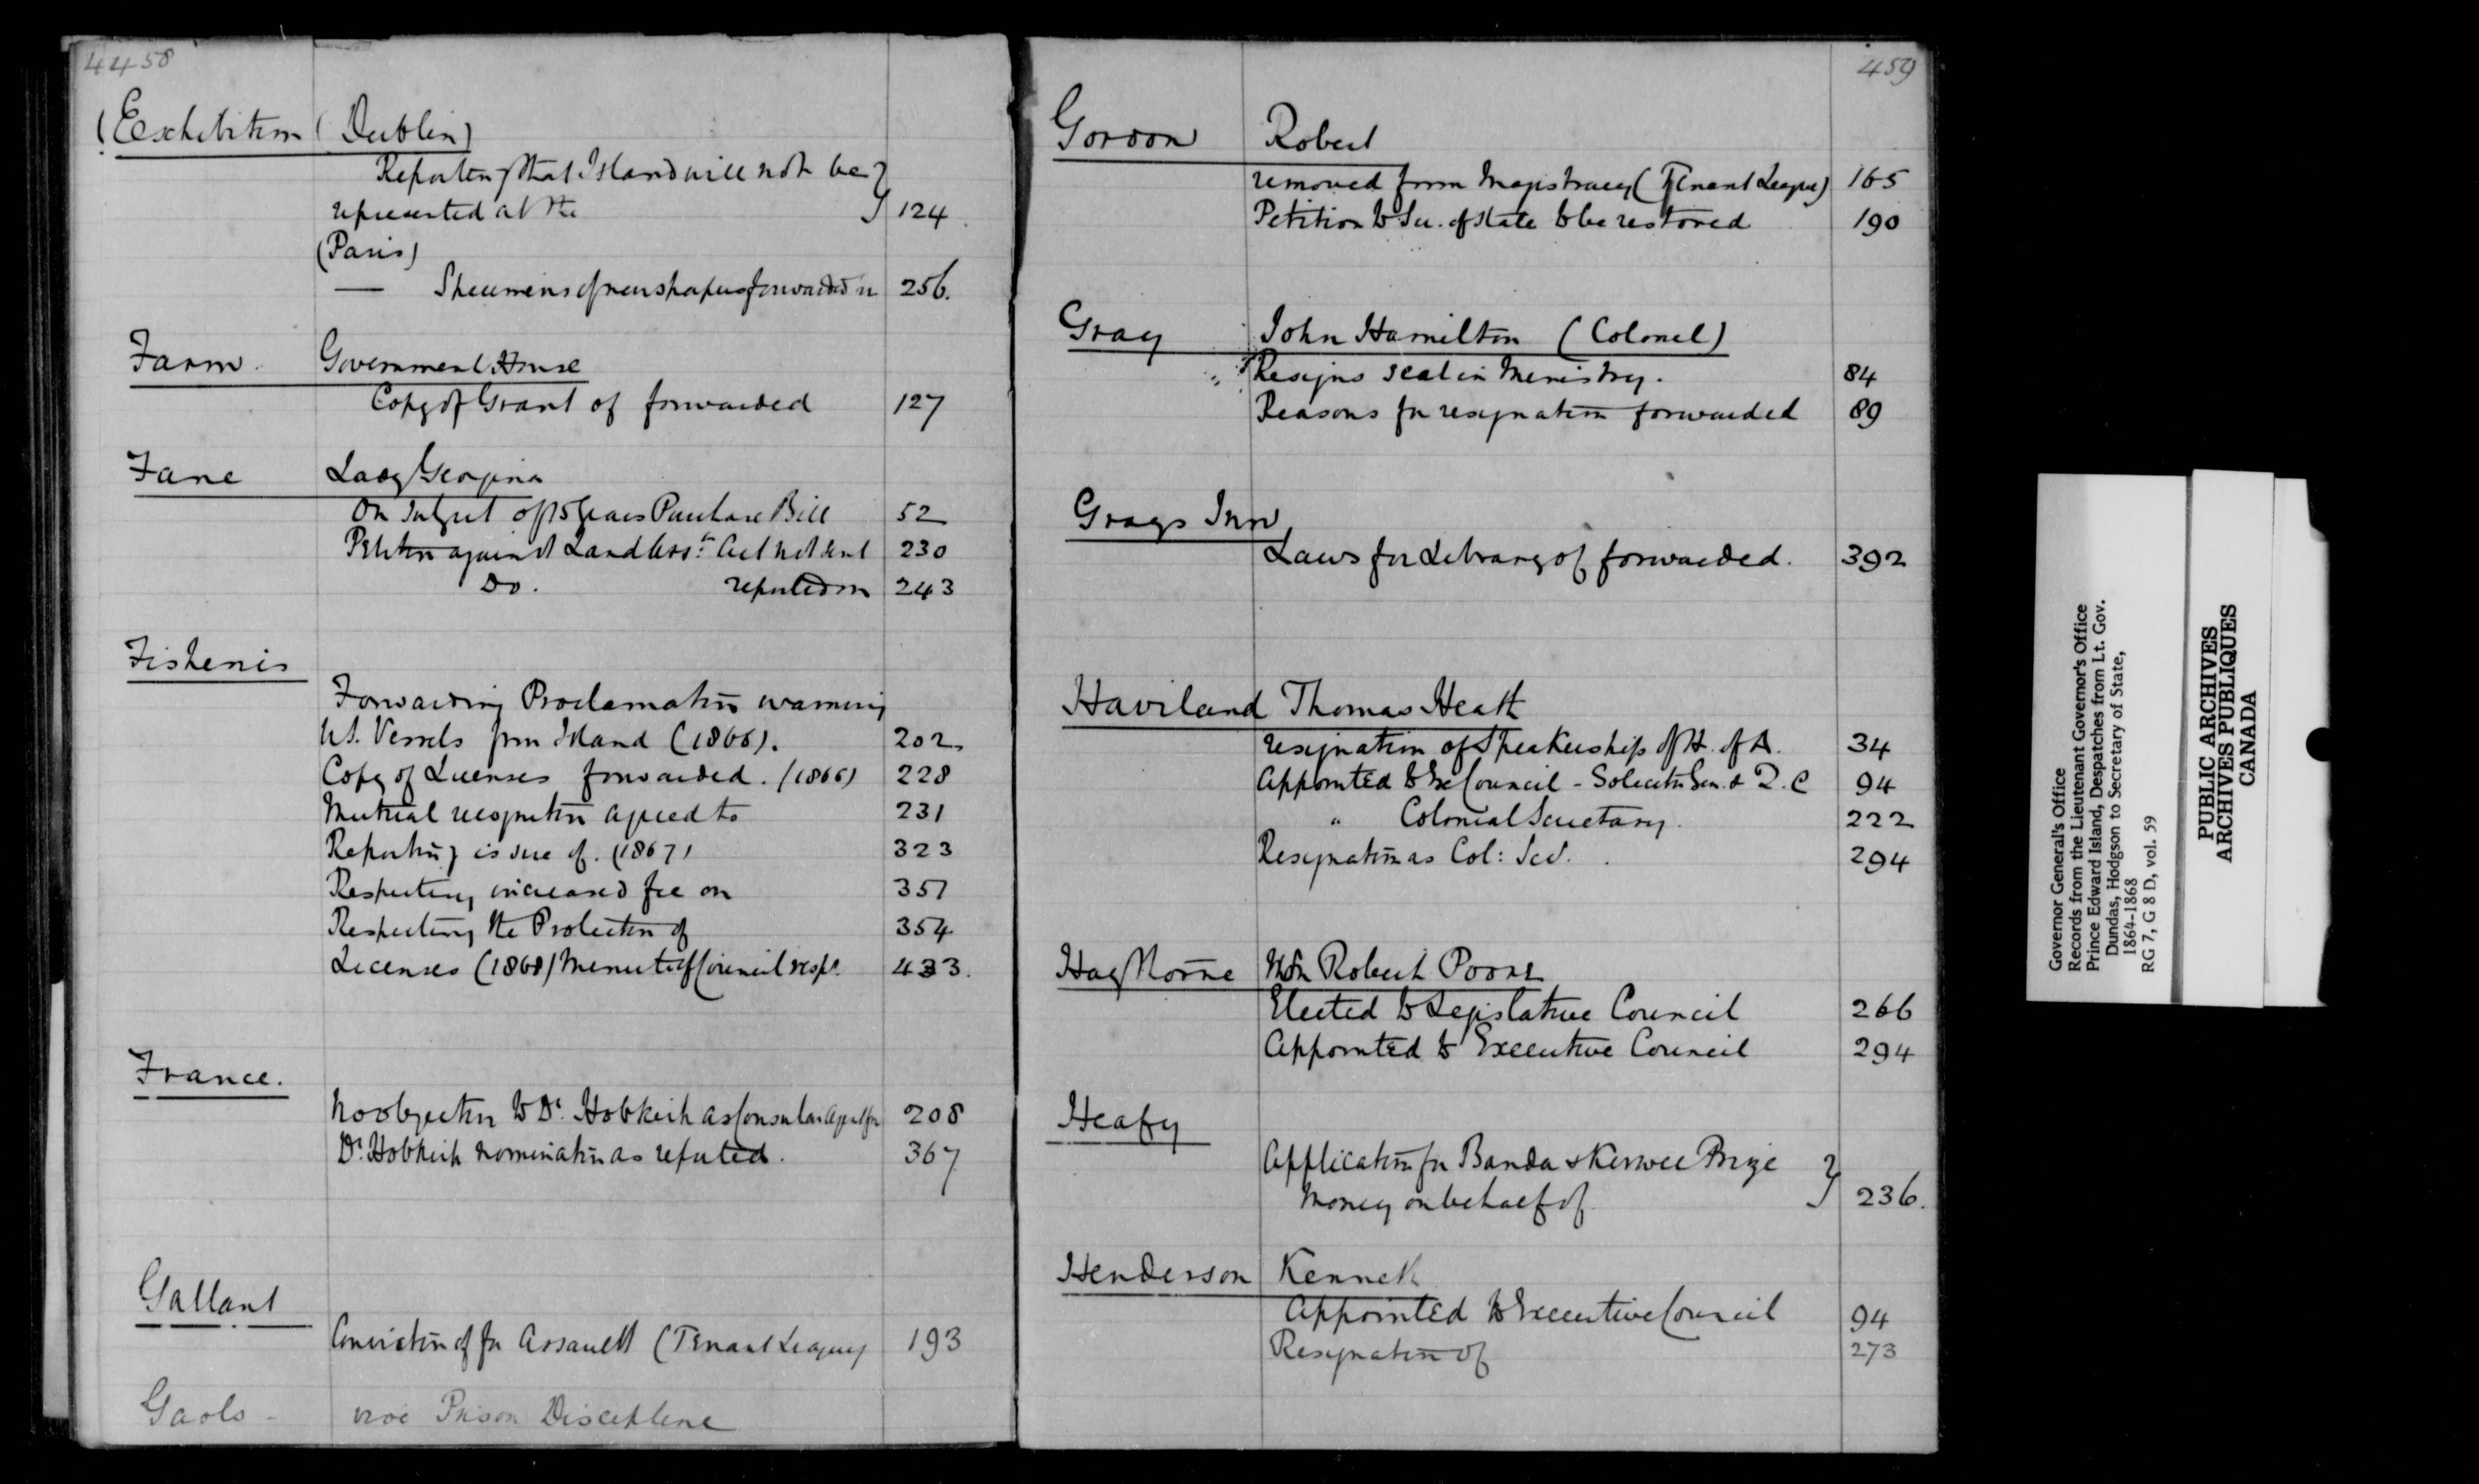 4458
(Exhibition (Dublin)
Reporting that Island will not be
represented at the 124
(Paris)
— Specimens of newspapers forwarded 256.
Farm. Government House
Copy of Grant of forwarded 127
Fane Lady Georgina
On Subject of 15 Years Purchase Bill 52
Petition against Land Asst. Act not sent 230
Do. reported on 243
Fisheries
Forwarding Proclamation warning
U.S. Vessels from Island (1866). 202
Copy of Licenses forwarded. (1866) 228
Mutual recognition agreed to 231
Reporting issue of. (1867) 323
Respecting increased fee on 351
Respecting the Protection of 354
Licenses (1868) Minute of Council resp. 433.
France.
No objection to Dr. Hobkirk as Consular Agent for 208
Dr. Hobkirk nomination as reputed. 367
Gallant
Conviction of for Assault (Tenant League) 193
Gaols - vide Prison Discipline
459
Gordon Robert
removed from Magistracy (Tenant League) 165
Petition to Sec. of State to be restored 190
Gray John Hamilton (Colonel)
" Resigns seat in Ministry. 84
Reasons for resignation forwarded 89
Grays Inn
Laws for Library of forwarded. 392
Haviland Thomas Heath
resignation of Speakership of H. of A. 34
Appointed to Ex Council - Solicitor Gen. & Q.C 94
" Colonial Secretary. 222
Resignation as Col: Sec. 294
Haythorne Hon Robert Poore
Elected to Legislative Council 266
Appointed to Executive Council 294
Heafy
Application for Banda & Kirwee Prize
Money on behalf of 236.
Henderson Kenneth
Appointed to Executive Council 94
Resignation of 273
Governor General's Office
Records from the Lieutenant Governor's Office
Prince Edward Island, Despatches from Lt. Gov.
Dundas, Hodgson to Secretary of State,
1864-1868
RG 7, G 8 D, vol. 59
PUBLIC ARCHIVES
ARCHIVES PUBLIQUES
CANADA